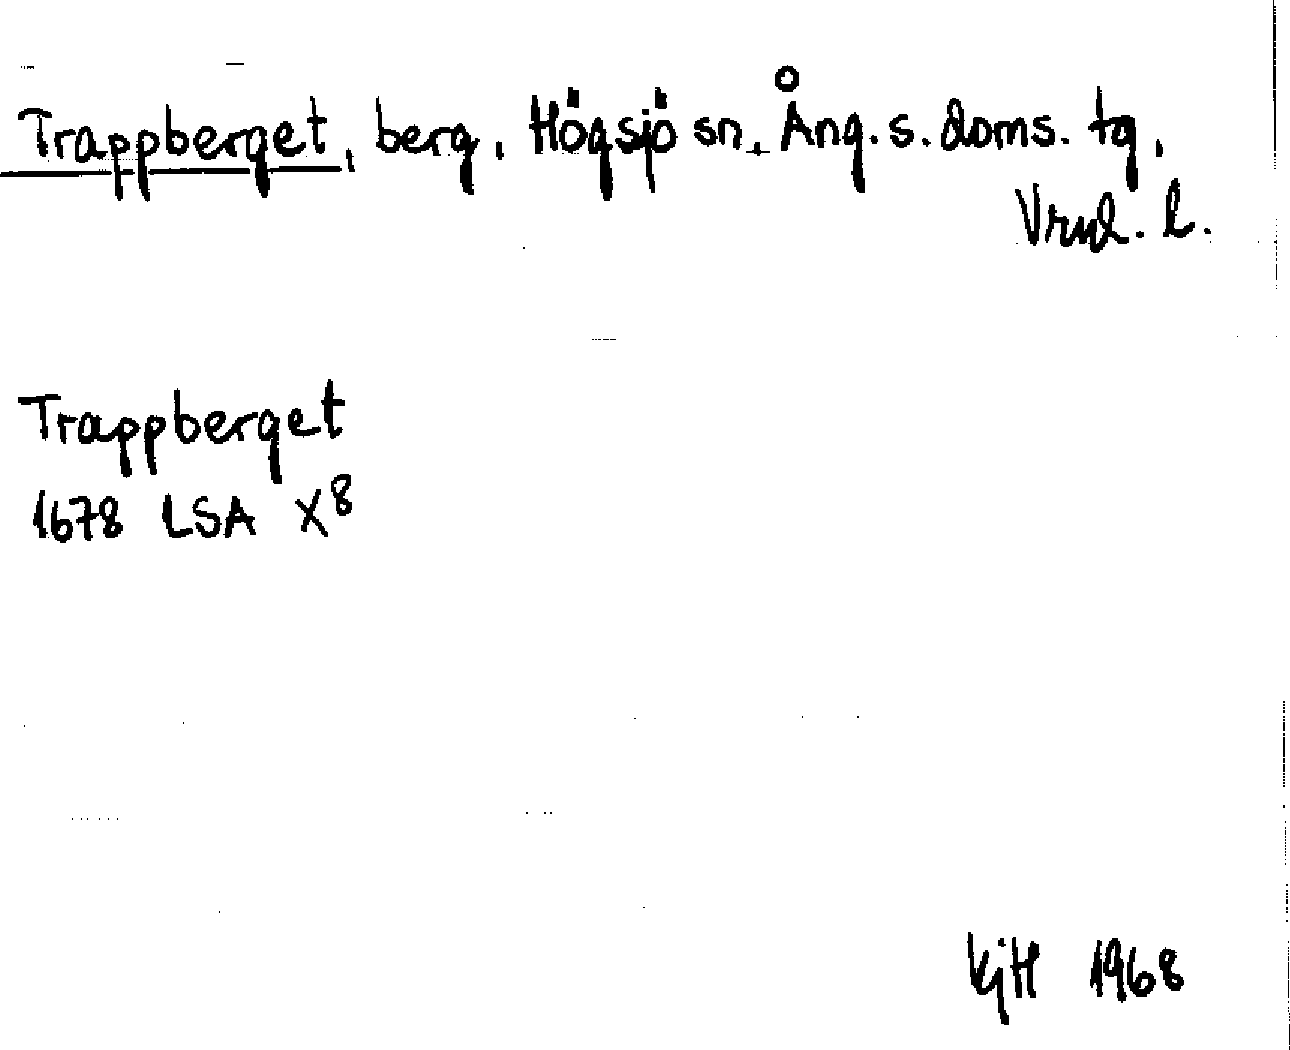 Trappberget, berg, Högsjö sn, Ång. s. doms. tg,
Vrnl. l.
Trappberget
1678 LSA X8
KjH 1968